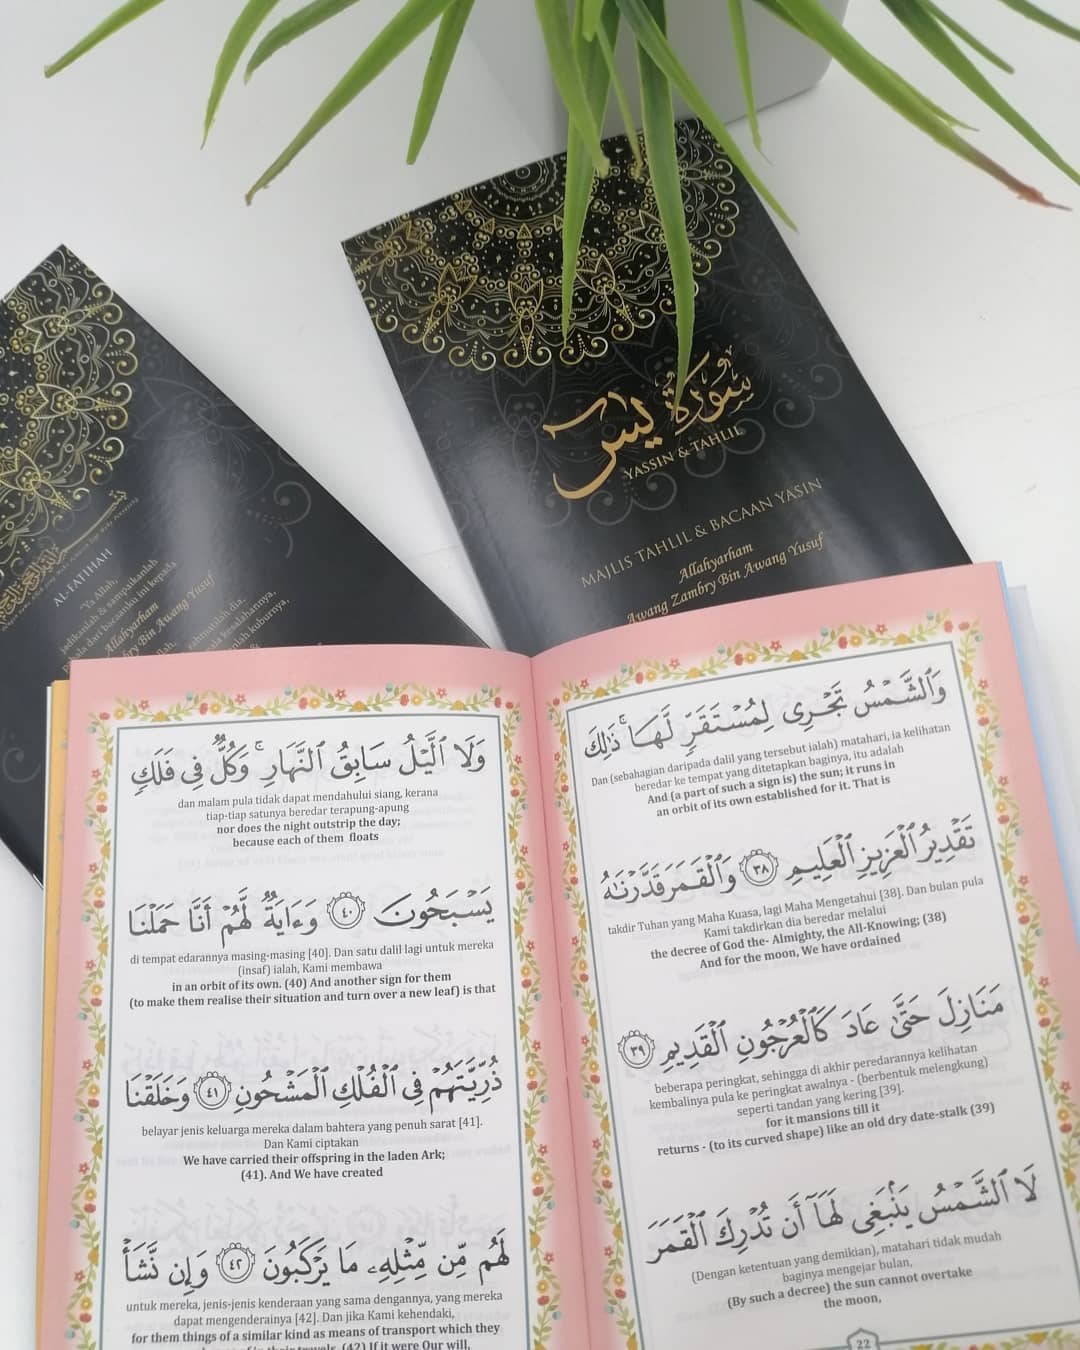 سورة يس
YASSIN & TAHLIL
MAJLIS TAHLIL & BACAAN YASIN
Allahyarham
Awang Zambry Bin Awang Yusuf
AL-FATIHAH
"Ya Allah,
jadikanlah & sampaikanlah
pahala dari bacaanku ini kepada
Allahyarham
bry Bin Awang Yusuf
rahmatilah dia,
kesalahannya,
kuburnya,
وَٱلشَّمْسُ تَجْرِى لِمُسْتَقَرٍّ لَّهَا ۚ ذَٰلِكَ
Dan (sebahagian daripada dalil yang tersebut ialah) matahari, ia kelihatan
beredar ke tempat yang ditetapkan baginya, itu adalah
And (a part of such a sign is) the sun; it runs in
an orbit of its own established for it. That is
تَقْدِيرُ ٱلْعَزِيزِ ٱلْعَلِيمِ ٣٨ وَٱلْقَمَرَ قَدَّرْنَٰهُ
takdir Tuhan yang Maha Kuasa, lagi Maha Mengetahui [38]. Dan bulan pula
Kami takdirkan dia beredar melalui
the decree of God the- Almighty, the All-Knowing; (38)
And for the moon, We have ordained
مَنَازِلَ حَتَّىٰ عَادَ كَٱلْعُرْجُونِ ٱلْقَدِيمِ ٣٩
beberapa peringkat, sehingga di akhir peredarannya kelihatan
kembalinya pula ke peringkat awalnya - (berbentuk melengkung)
seperti tandan yang kering [39].
for it mansions till it
returns - (to its curved shape) like an old dry date-stalk (39)
لَا ٱلشَّمْسُ يَنۢبَغِى لَهَآ أَن تُدْرِكَ ٱلْقَمَرَ
(Dengan ketentuan yang demikian), matahari tidak mudah
baginya mengejar bulan,
(By such a decree) the sun cannot overtake
the moon,
22
وَلَا ٱلَّيْلُ سَابِقُ ٱلنَّهَارِ ۚ وَكُلٌّ فِى فَلَكٍ
dan malam pula tidak dapat mendahului siang, kerana
tiap-tiap satunya beredar terapung-apung
nor does the night outstrip the day;
because each of them floats
يَسْبَحُونَ ٤٠ وَءَايَةٌ لَّهُمْ أَنَّا حَمَلْنَا
di tempat edarannya masing-masing [40]. Dan satu dalil lagi untuk mereka
(insaf) ialah, Kami membawa
in an orbit of its own. (40) And another sign for them
(to make them realise their situation and turn over a new leaf) is that
ذُرِّيَّتَهُمْ فِى ٱلْفُلْكِ ٱلْمَشْحُونِ ٤١ وَخَلَقْنَا
belayar jenis keluarga mereka dalam bahtera yang penuh sarat [41].
Dan Kami ciptakan
We have carried their offspring in the laden Ark;
(41). And We have created
لَهُم مِّن مِّثْلِهِۦ مَا يَرْكَبُونَ ٤٢ وَإِن نَّشَأْ
untuk mereka, jenis-jenis kenderaan yang sama dengannya, yang mereka
dapat mengenderainya [42]. Dan jika Kami kehendaki,
for them things of a similar kind as means of transport which they
(42) If it were Our will,